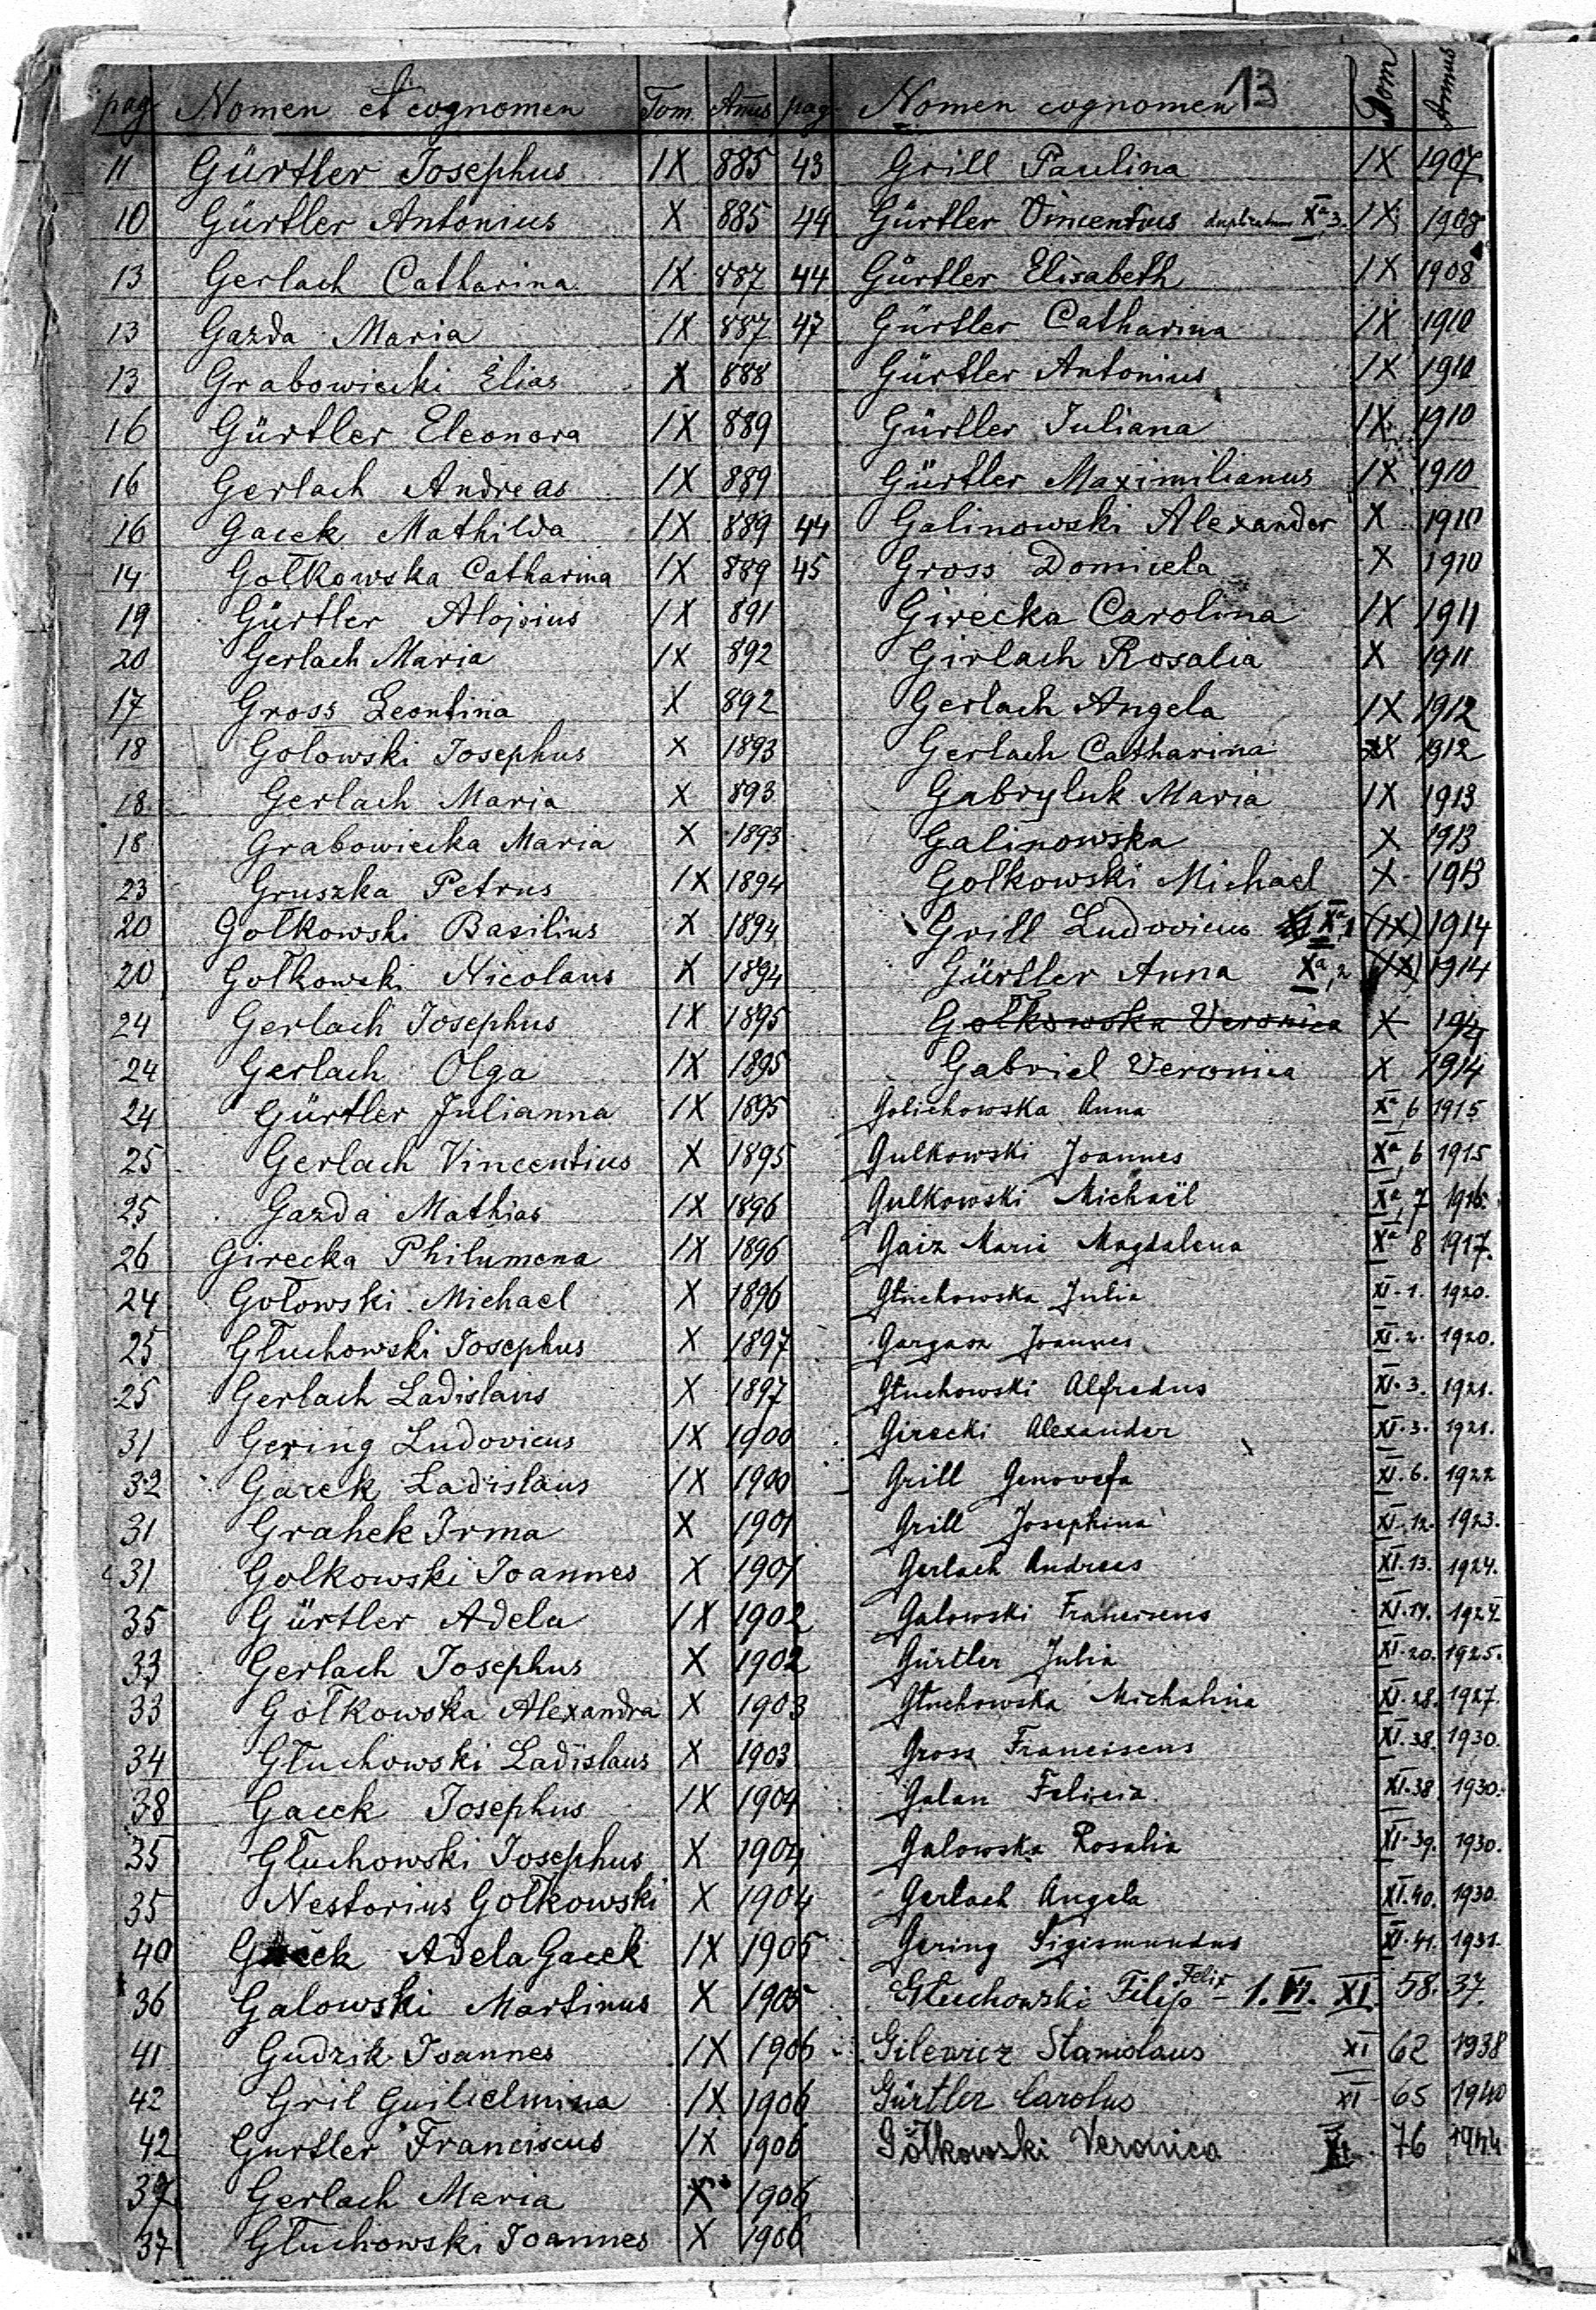 13
pag Nomen et cognomen Tom. Annus
11 Gürtler Josephus IX 885
10 Gürtler Antonius X 885
13 Gerlach Catharina IX 887
13 Gazda Maria IX 887
13 Grabowiecki Elias X 888
16 Gürtler Eleonora IX 889
16 Gerlach Andreas IX 889
16 Gacek Mathilda IX 889
14 Gołkowska Catharina IX 889
19 Gürtler Alojsius IX 891
20 Gerlach Maria IX 892
17 Gross Leontina X 892
18 Golowski Josephus X 1893
18 Gerlach Maria X 893
18 Grabowiecka Maria X 1893
23 Gruszka Petrus IX 1894
20 Gołkowski Basilius X 1894
20 Gołkowski Nicolaus X 1894
24 Gerlach Josephus IX 1895
24 Gerlach Olga IX 1895
24 Gürtler Julianna IX 1895
25 Gerlach Vincentius X 1895
25 Gazda Mathias IX 1896
26 Girecka Philumena IX 1896
24 Gołowski Michael X 1896
25 Głuchowski Josephus X 1897
25 Gerlach Ladislaus X 1897
31 Gering Ludovicus IX 1900
32 Gacek Ladislaus IX 1900
31 Grahek Irma X 1901
31 Golkowski Joannes X 1901
35 Gürtler Adela IX 1902
33 Gerlach Josephus X 1902
33 Gołkowska Alexandra X 1903
34 Głuchowski Ladislaus X 1903
38 Gacek Josephus IX 1904
35 Głuchowski Josephus X 1904
35 Nestorius Gołkowski X 1904
40 Gacek Adela Gacek IX 1905
36 Galowski Martinus X 1905
41 Gudzik Joannes IX 1906
42 Gril Guilielmina IX 1906
42 Gurtler Franciscus IX 1906
37 Gerlach Maria X 1906
37 Głuchowski Joannes X 1906
pag. Nomen cognomen Tom Annus
43 Grill Paulina IX 1907
44 Gürtler Vincentius duplicatum Xa,3. IX 1908
44 Gürtler Elisabeth IX 1908
47 Gürtler Catharina IX 1910
Gürtler Antonius IX 1910
Gürtler Juliana IX 1910
Gürtler Maximilianus IX 1910
44 Galinowski Alexander X 1910
45 Gross Domicela X 1910
Girecka Carolina IX 1911
Girlach Rosalia X 1911
Gerlach Angela IX 1912
Gerlach Catharina X 1912
Gabryluk Maria IX 1913
Galinowska X 1913
Gołkowski Michael X 1913
Grill Ludovicus Xa,1 (IX) 1914
Gürtler Anna Xa,2 (IX) 1914
Gołkowska Veronica X 1914
Gabriel Veronica X 1914
Golichowska Anna Xa,6 1915
Gulkowski Joannes Xa,6 1915
Gulkowski Michaël Xa,7 1916.
Gaiz Marii Magdalena Xa 8 1917.
Głuchowska Julia XI-1. 1920.
Gargasz Joannes XI-2. 1920.
Głuchowski Alfredus XI-3. 1921.
Girecki Alexander XI-3. 1921.
Grill Genowefa XI-6. 1922
Grill Josephina XI-12. 1923.
Gerlach Andreas XI-13. 1924.
Galowski Franciscus XI-14. 1924
Gürtler Julia XI-20. 1925.
Głuchowska Michalina XI-28. 1927.
Gross Franciscus XI-38. 1930.
Galan Felicia. XI-38. 1930.
Galowska Rosalia XI-39. 1930.
Gerlach Angela XI.40. 1930.
Gering Sigismundus XI-41. 1931.
Głuchowski Filip Felix - 1. VI. XI. 58. 37.
Gilewicz Stanislaus XI 62 1938
Gürtler Carolus XI 65 1940
Gołkowski Veronica XI. 76 1944